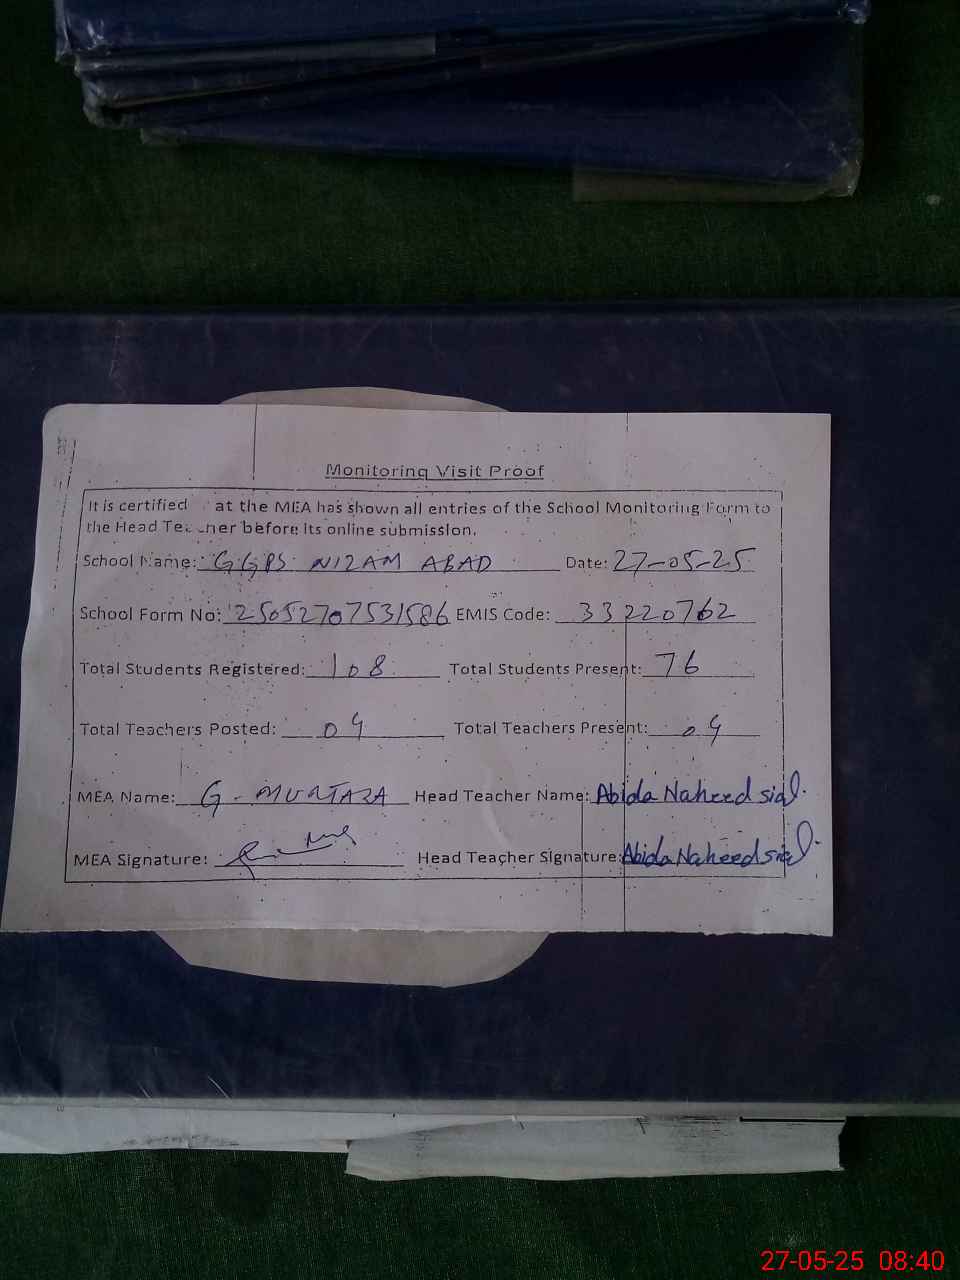 Monitoring Visit Proof
It is certified at the MEA has shown all entries of the School Monitoring Form to
the Head Teacher before its online submission.
School Name: GGPS NIZAM ABAD Date: 27-05-25
School Form No: 25052707531586 EMIS Code: 33220762
Total Students Registered: 108 Total Students Present: 76
Total Teachers Posted: 04 Total Teachers Present: 04
MEA Name: G - MURTAZA Head Teacher Name: Abida Naheed sial.
MEA Signature: Head Teacher Signature: Abida Naheed sial.
27-05-25 08:40